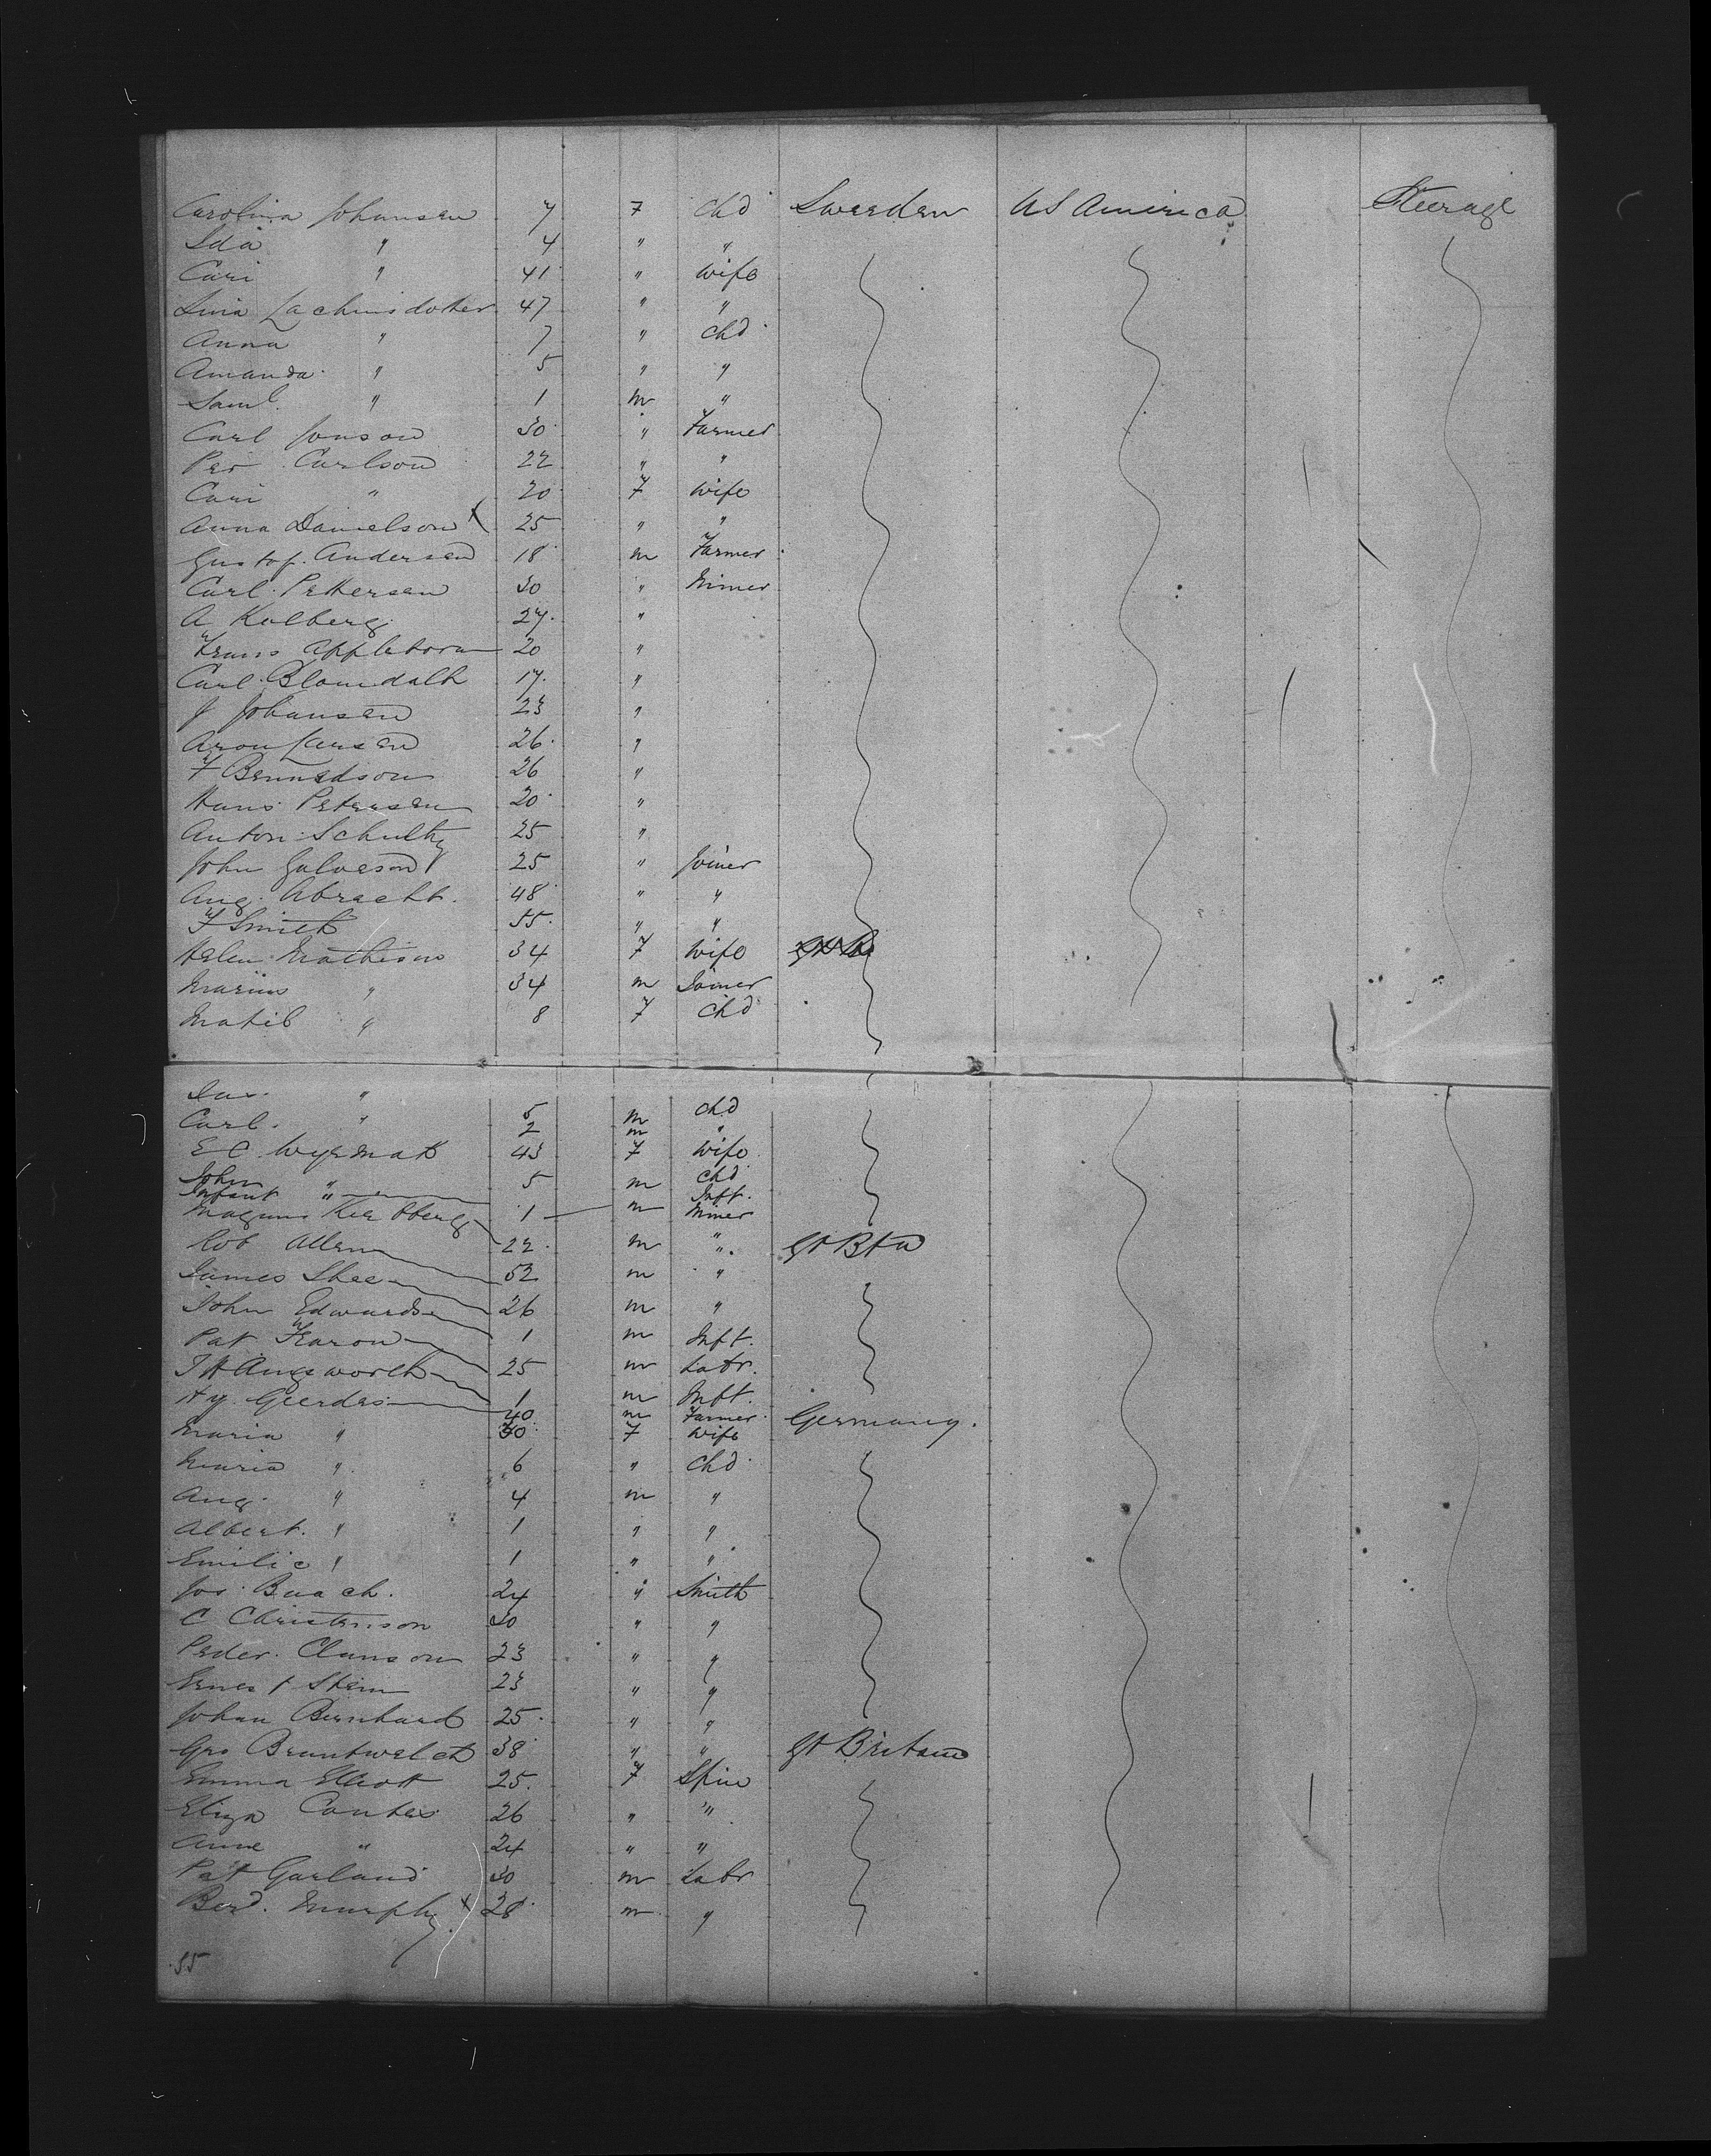 Carolina Johansen 7 F Chd Sweeden US America Steerage
Ida " 4 " "
Cari " 41 " Wife
Lina Lachinsdotter 47 " "
Anna " 7 " Chd
Amanda " 5 " "
Saml. " 1 m "
Carl Jonson 30 " Farmer
Per Carlson 22 " "
Cari " 20 F Wife
Anna Danielson x 25 " "
Gustof Andersen 18 m Farmer
Carl Pettersen 30 " Miner
A Kolberg 27 "
Frans Appleborn 20 "
Carl Blomdalh 17 "
J Johansen 23 "
Aron Larsen 26 "
F Bennedson 26 "
Hans Petersen 20 "
Anton Schultz 25 "
John Galveson 25 " Joiner
Aug. Abracht. 48 " "
F Smith 55 " "
Helen Mathison 34 F Wife
Marius " 34 m Joiner
Matil " 8 F Chd
Jas. " 5 m Chd
Carl. " 2 m "
E C 43 F Wife
John " 5 m Chd
Infant " 1 m Inft.
Magnus 22 m Miner "
Rob Allen 52 m " Gt Btn
James Shee 26 m "
John Edwards 1 m Inft.
Pat Fearon 25 m Labr.
J H Angsworth 1 m Inft.
Hy. Geerdes 40 m Farmer Germany.
Maria " 30 F Wife
Maria " 6 " Chd
Aug. " 4 m "
Albert. " 1 " "
Emilie " 1 " "
Jos. Buach. 24 " Smith
C Christenson 30 " "
Peder. Clauson 23 " "
Ernest Stein 23 " "
Johan Bernhard 25 " "
Geo Bruntwelch 38 " " Gt Britain
Emma Elliott 25. F Spin
Eliza Coates 26 " "
Anne " 24 " "
Pat Garland 30 m Labr
Berd. Murphy x 28 m "
55